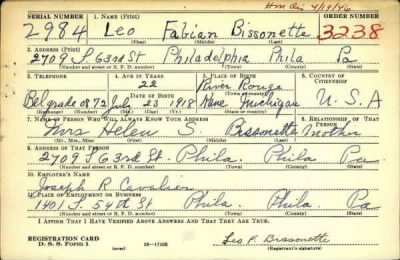 Hon Dis 4/19/46
SERIAL NUMBER 1. NAME (Print) ORDER NUMBER
2984 Leo Fabian Bissonette 3238
(First) (Middle) (Last)
2. ADDRESS (Print)
2709 S. 63rd St Philadelphia Phila Pa
(Number and street or R. F. D. number) (Town) (County) (State)
3. TELEPHONE 4. AGE IN YEARS 5. PLACE OF BIRTH 6. COUNTRY OF CITIZENSHIP
22 River Rouge
Belgrade 0872 DATE OF BIRTH (Town or county)
July 23 1918 Michigan U.S.A
(Exchange) (Number) (Mo.) (Day) (Yr.) (State or country)
7. NAME OF PERSON WHO WILL ALWAYS KNOW YOUR ADDRESS 8. RELATIONSHIP OF THAT PERSON
Mrs Helen S. Bissonette Mother
(Mr., Mrs., Miss) (First) (Middle) (Last)
9. ADDRESS OF THAT PERSON
2709 S 63rd St. Phila. Phila Pa
(Number and street or R. F. D. number) (Town) (County) (State)
10. EMPLOYER'S NAME
Joseph R. Cavalier
11. PLACE OF EMPLOYMENT OR BUSINESS
1401 S. 54th St Phila. Phila. Pa
(Number and street or R. F. D. number) (Town) (County) (State)
I AFFIRM THAT I HAVE VERIFIED ABOVE ANSWERS AND THAT THEY ARE TRUE.
REGISTRATION CARD
D. S. S. Form 1 (over) 16—17105 Leo F. Bissonette
(Registrant's signature)